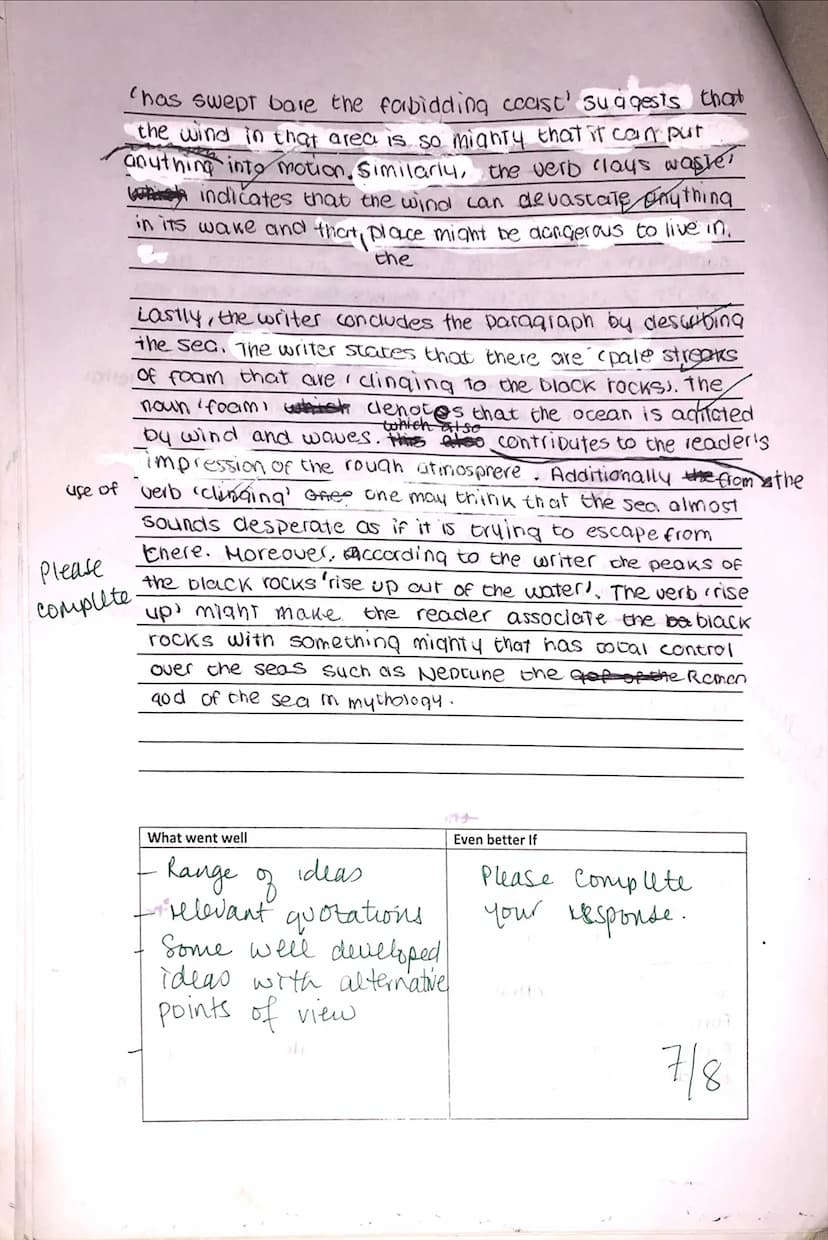 'has swept bare the forbidding coast' suggests that
the wind in that area is so mighty that it can put
anything into motion. Similarly, the verb 'lays waste'
which indicates that the wind can devastate anything
in its wake and that, place might be dangerous to live in.
the
Lastly, the writer concludes the paragraph by describing
the sea. The writer states that there are 'pale streaks
of foam that are 'clinging to the black rocks'. The
noun 'foam' which denotes that the ocean is agitated
which also
by wind and waves. this also contributes to the reader's
impression of the rough atmosphere. Additionally the from the
use of verb 'clinging' one may think that the sea almost
sounds desperate as if it is trying to escape from
there. Moreover, according to the writer the peaks of
Please
the black rocks 'rise up out of the water'. The verb 'rise
complete
up' might make the reader associate the black
rocks with something mighty that has total control
over the seas such as Neptune the god of the Roman
god of the sea in mythology.
What went well
Even better If
- Range of ideas
- relevant quotations
- Some well developed
ideas with alternative
points of view
Please complete
your response.
7/8